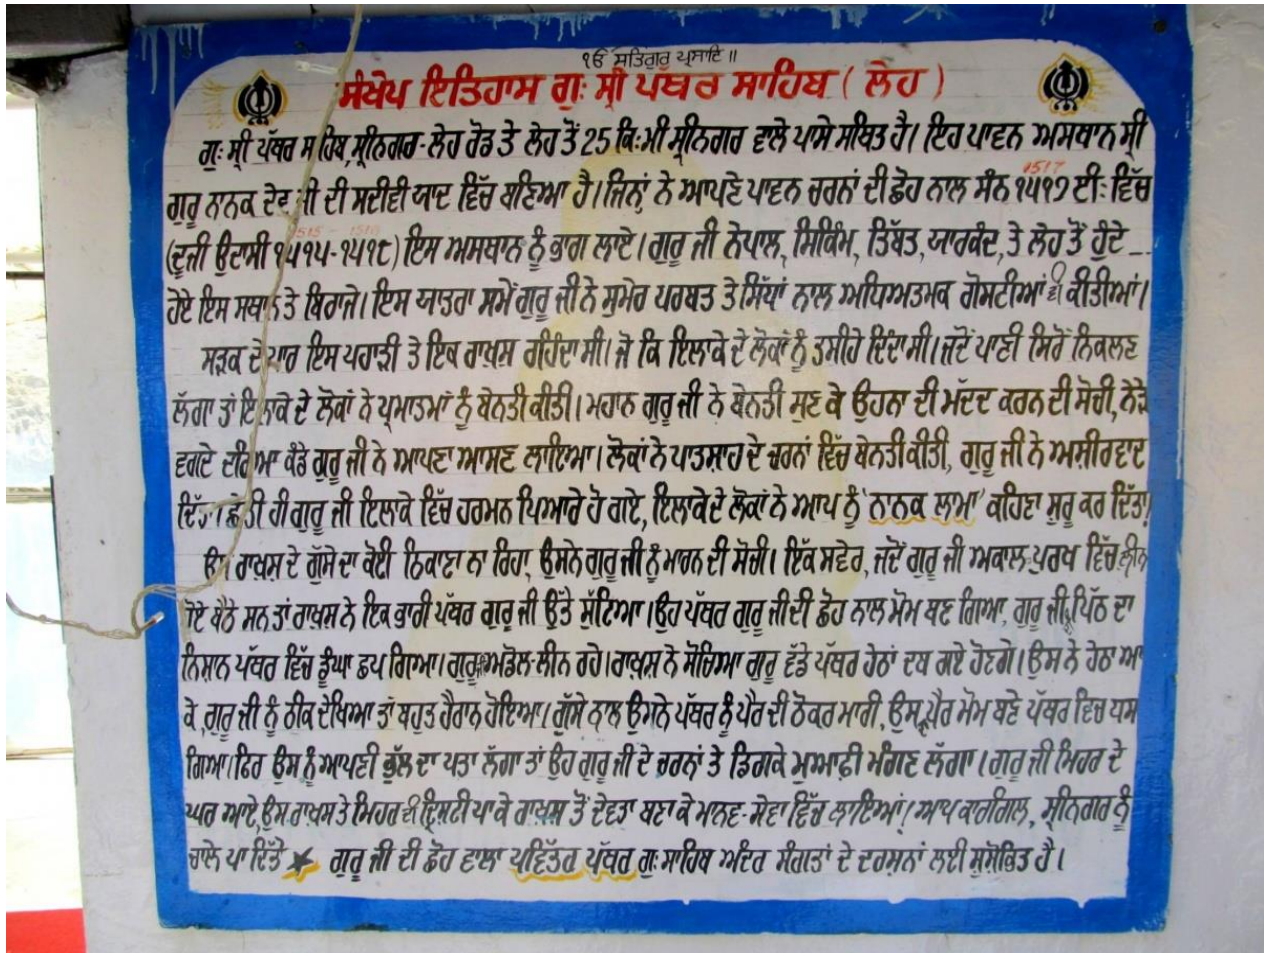 ੴ ਸਤਿਗੁਰ ਪ੍ਰਸਾਦਿ ॥
ਸੰਖੇਪ ਇਤਿਹਾਸ ਗੁ: ਸ੍ਰੀ ਪੱਥਰ ਸਾਹਿਬ ( ਲੇਹ )
ਗੁ: ਸ੍ਰੀ ਪੱਥਰ ਸਾਹਿਬ, ਸ਼੍ਰੀਨਗਰ-ਲੇਹ ਰੋਡ ਤੇ ਲੇਹ ਤੋਂ 25 ਕਿ:ਮੀ ਸ਼੍ਰੀਨਗਰ ਵਾਲੇ ਪਾਸੇ ਸਥਿਤ ਹੈ। ਇਹ ਪਾਵਨ ਅਸਥਾਨ ਸ੍ਰੀ
1517
ਗੁਰੂ ਨਾਨਕ ਦੇਵ ਜੀ ਦੀ ਸਦੀਵੀ ਯਾਦ ਵਿੱਚ ਬਣਿਆ ਹੈ। ਜਿਨ੍ਹਾਂ ਨੇ ਆਪਣੇ ਪਾਵਨ ਚਰਨਾਂ ਦੀ ਛੋਹ ਨਾਲ ਸੰਨ ੧੫੧੭ ਈ: ਵਿੱਚ
1515 - 1518
(ਦੂਜੀ ਉਦਾਸੀ ੧੫੧੫-੧੫੧੮) ਇਸ ਅਸਥਾਨ ਨੂੰ ਭਾਗ ਲਾਏ। ਗੁਰੂ ਜੀ ਨੇਪਾਲ, ਸਿਕਿੰਮ, ਤਿੱਬਤ, ਯਾਰਕੰਦ, ਤੇ ਲੇਹ ਤੋਂ ਹੁੰਦੇ --
ਹੋਏ ਇਸ ਸਥਾਨ ਤੇ ਬਿਰਾਜੇ। ਇਸ ਯਾਤਰਾ ਸਮੇਂ ਗੁਰੂ ਜੀ ਨੇ ਸੁਮੇਰ ਪਰਬਤ ਤੇ ਸਿੱਧਾਂ ਨਾਲ ਅਧਿਅਤਮਕ ਗੋਸਟੀਆਂ ਵੀ ਕੀਤੀਆਂ।
ਸੜਕ ਦੇ ਪਾਰ ਇਸ ਪਹਾੜੀ ਤੇ ਇਕ ਰਾਖ਼ਸ਼ ਰਹਿੰਦਾ ਸੀ। ਜੋ ਕਿ ਇਲਾਕੇ ਦੇ ਲੋਕਾਂ ਨੂੰ ਤਸੀਹੇ ਦਿੰਦਾ ਸੀ। ਜਦੋਂ ਪਾਣੀ ਸਿਰੋਂ ਨਿਕਲਣ
ਲੱਗਾ ਤਾਂ ਇਲਾਕੇ ਦੇ ਲੋਕਾਂ ਨੇ ਪ੍ਰਮਾਤਮਾਂ ਨੂੰ ਬੇਨਤੀ ਕੀਤੀ। ਮਹਾਨ ਗੁਰੂ ਜੀ ਨੇ ਬੇਨਤੀ ਸੁਣ ਕੇ ਉਹਨਾ ਦੀ ਮੱਦਦ ਕਰਨ ਦੀ ਸੋਚੀ, ਨੇੜੇ
ਵਗਦੇ ਦਰਿਆ ਕੰਡੇ ਗੁਰੂ ਜੀ ਨੇ ਆਪਣਾ ਆਸਣ ਲਾਇਆ। ਲੋਕਾਂ ਨੇ ਪਾਤਸ਼ਾਹ ਦੇ ਚਰਨਾਂ ਵਿੱਚ ਬੇਨਤੀ ਕੀਤੀ, ਗੁਰੂ ਜੀ ਨੇ ਅਸ਼ੀਰਵਾਦ
ਦਿੱਤਾ। ਛੇਤੀ ਹੀ ਗੁਰੂ ਜੀ ਇਲਾਕੇ ਵਿੱਚ ਹਰਮਨ ਪਿਆਰੇ ਹੋ ਗਏ, ਇਲਾਕੇ ਦੇ ਲੋਕਾਂ ਨੇ ਆਪ ਨੂੰ 'ਨਾਨਕ ਲਾਮਾ' ਕਹਿਣਾ ਸ਼ੁਰੂ ਕਰ ਦਿੱਤਾ।
ਇਸ ਰਾਖ਼ਸ਼ ਦੇ ਗੁੱਸੇ ਦਾ ਕੋਈ ਠਿਕਾਣਾ ਨਾ ਰਿਹਾ, ਉਸਨੇ ਗੁਰੂ ਜੀ ਨੂੰ ਮਾਰਨ ਦੀ ਸੋਚੀ। ਇੱਕ ਸਵੇਰ, ਜਦੋਂ ਗੁਰੂ ਜੀ ਅਕਾਲ-ਪੁਰਖ ਵਿੱਚ ਲੀਨ
ਹੋਏ ਬੈਠੇ ਸਨ ਤਾਂ ਰਾਖ਼ਸ਼ ਨੇ ਇਕ ਭਾਰੀ ਪੱਥਰ ਗੁਰੂ ਜੀ ਉੱਤੇ ਸੁੱਟਿਆ। ਉਹ ਪੱਥਰ ਗੁਰੂ ਜੀ ਦੀ ਛੋਹ ਨਾਲ ਮੋਮ ਬਣ ਗਿਆ, ਗੁਰੂ ਜੀ ਪਿੱਠ ਦਾ
ਨਿਸ਼ਾਨ ਪੱਥਰ ਵਿੱਚ ਡੂੰਘਾ ਛਪ ਗਿਆ। ਗੁਰੂ ਜੀ ਅਡੋਲ-ਲੀਨ ਰਹੇ। ਰਾਖ਼ਸ਼ ਨੇ ਸੋਚਿਆ ਗੁਰੂ ਵੱਡੇ ਪੱਥਰ ਹੇਠਾਂ ਦਬ ਗਏ ਹੋਣਗੇ। ਉਸ ਨੇ ਹੇਠਾ ਆ
ਕੇ, ਗੁਰੂ ਜੀ ਨੂੰ ਠੀਕ ਦੇਖਿਆ ਤਾਂ ਬਹੁਤ ਹੈਰਾਨ ਹੋਇਆ। ਗੁੱਸੇ ਨਾਲ ਉਸਨੇ ਪੱਥਰ ਨੂੰ ਪੈਰ ਦੀ ਠੋਕਰ ਮਾਰੀ, ਉਸ ਪੈਰ ਮੋਮ ਬਣੇ ਪੱਥਰ ਵਿਚ ਧਸ
ਗਿਆ। ਫਿਰ ਉਸ ਨੂੰ ਆਪਣੀ ਭੁੱਲ ਦਾ ਪਤਾ ਲੱਗਾ ਤਾਂ ਉਹ ਗੁਰੂ ਜੀ ਦੇ ਚਰਨਾਂ ਤੇ ਡਿਗਕੇ ਮੁਆਫ਼ੀ ਮੰਗਣ ਲੱਗਾ। ਗੁਰੂ ਜੀ ਮਿਹਰ ਦੇ
ਘਰ ਆਏ, ਉਸ ਰਾਖ਼ਸ਼ ਤੇ ਮਿਹਰ ਦੀ ਦ੍ਰਿਸ਼ਟੀ ਪਾ ਕੇ ਰਾਖ਼ਸ਼ ਤੋਂ ਦੇਵਤਾ ਬਣਾ ਕੇ ਮਾਨਵ-ਸੇਵਾ ਵਿੱਚ ਲਾਇਆਂ। ਆਪ ਕਾਰਗਿਲ, ਸ਼੍ਰੀਨਗਰ ਨੂੰ
ਚਾਲੇ ਪਾ ਦਿੱਤੇ ★ ਗੁਰੂ ਜੀ ਦੀ ਛੋਹ ਵਾਲਾ ਪਵਿੱਤਰ ਪੱਥਰ ਗੁ: ਸਾਹਿਬ ਅੰਦਰ ਸੰਗਤਾਂ ਦੇ ਦਰਸ਼ਨਾਂ ਲਈ ਸੁਸ਼ੋਭਿਤ ਹੈ।